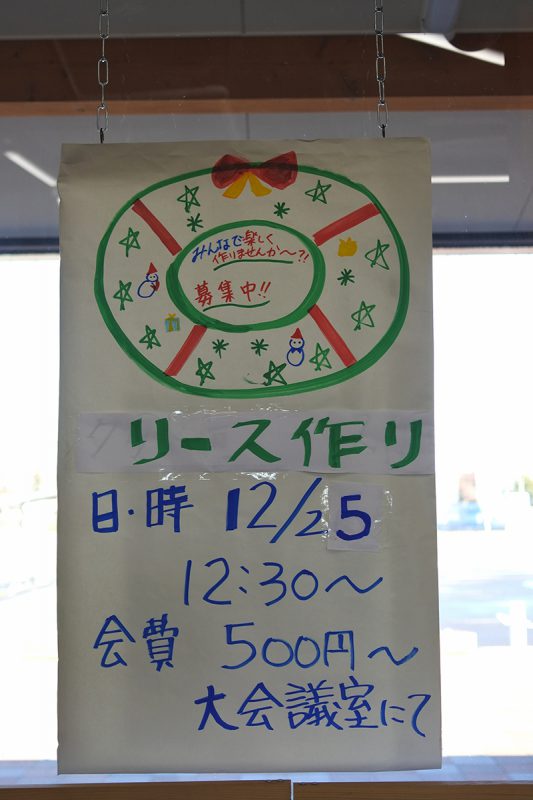 みんなで楽しく
作りませんか〜?!
募集中!!
リース作り
日・時 12/25
12:30〜
会費 500円〜
大会議室にて